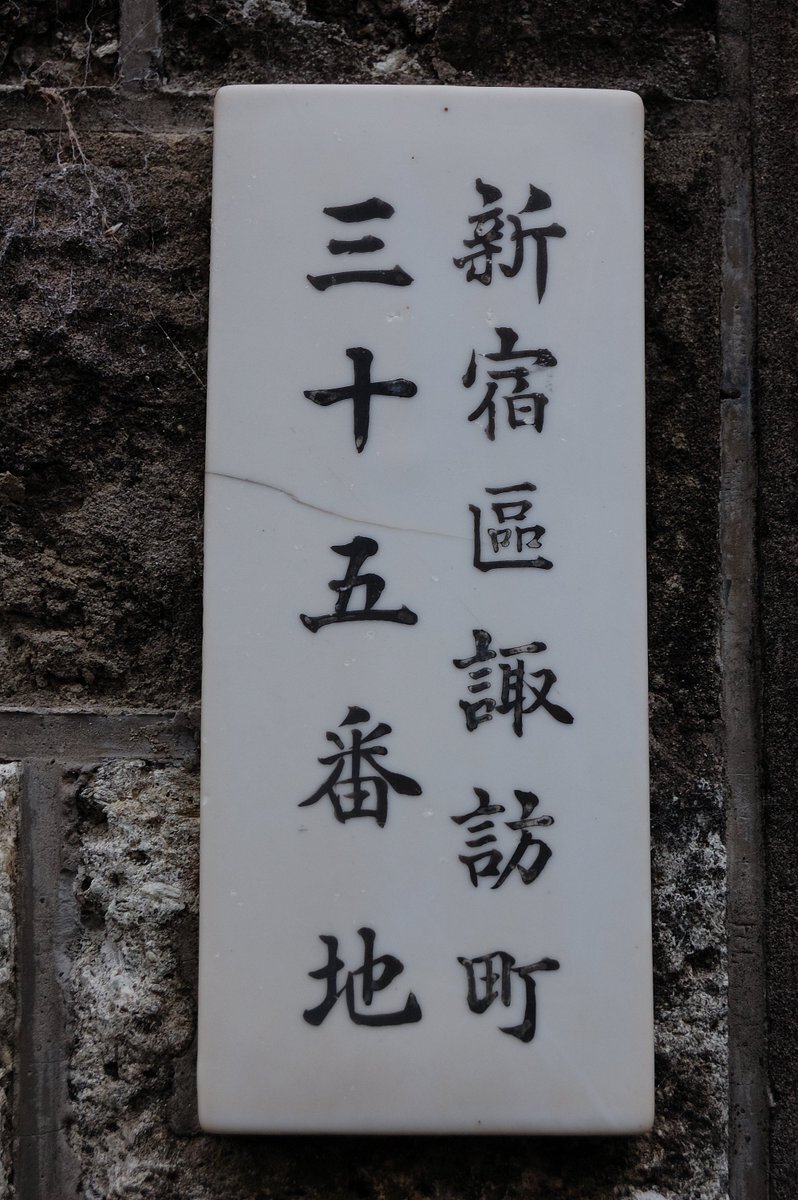 新宿區諏訪町
三十五番地